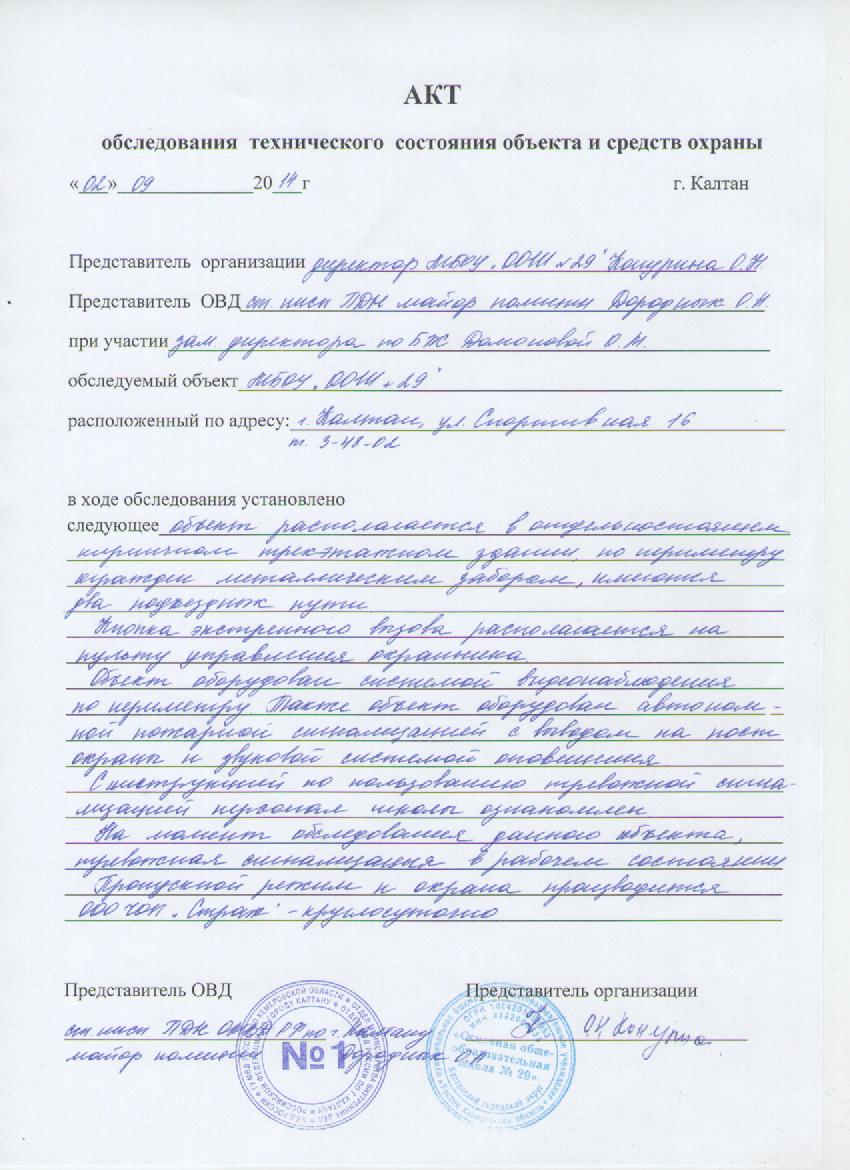 АКТ
обследования технического состояния объекта и средств охраны
«02» 09 2014 г г. Калтан
Представитель организации директор МБОУ „ООШ №29" Конурина О.Н.
Представитель ОВД ст. инсп ПДН майор полиции Дородных О.Н.
при участии зам. директора по БЖ О.М.
обследуемый объект МБОУ „ООШ №29"
расположенный по адресу: г. Калтан, ул. Спортивная 16
т. 3-48-02
в ходе обследования установлено
следующее объект располагается в отдельностоящем
кирпичном трехэтажном здании, по периметру
огражден металлическим забором, имеются
два подъездных пути
Кнопка экстренного вызова располагается на
пульту управления охранника.
Объект оборудован системой видеонаблюдения
по периметру Также объект оборудован автоном-
ной пожарной сигнализацией с выводом на пост
охраны и звуковой системой оповещения
С инструкцией по пользованию тревожной сигна-
лизацией персонал школы ознакомлен
На момент обследования данного объекта,
тревожная сигнализация в рабочем состоянии
Пропускной режим и охрана производится
ООО ЧОП „Страж" - круглосуточно
Представитель ОВД Представитель организации
ст инсп ПДН РФ по г. Калтану ОН Конурина
майор полиции Дородных О.Н.
№1
«Основная обще-
образовательная
школа № 29»
Калтанский городской округ